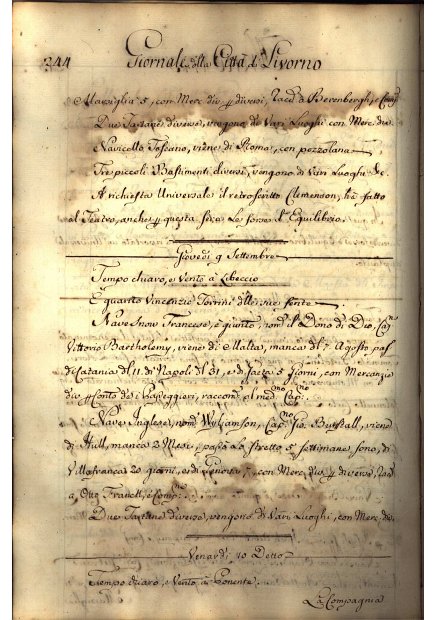 344 Giornale della Città di Livorno
Marsiglia 5, con Merc. div. p diversi, racc. a Berenbergh, e Comp.
Due Tartane diverse, vengono da Vari Luoghi con Merc. div.
Navicello Toscano, viene di Roma, con pozzolana
Tre piccoli Bastimenti diversi, vengono di Vari Luoghi &c.
A richiesta Universale il retroscritto Clemenson, hà fatto
al Teatro, anche p questa sera Le forze d'Equilibrio.
Giovedì 9 Settembre
Tempo chiaro, e Vento à Libeccio
E quanto Vincenzio
Nave Snow Francese, è giunto, nom. il Dono di Dio, Cap.
Vittorio Bartholomy, viene di Malta, manca dal 7 Agosto pas.
di Catania dl 11. di Napoli dl 31, e di Gaeta 5 Giorni, con Mercanzie
div. p Conto de i Passeggieri, raccom. al med.mo Cap.no
Nave Inglese, nom. Williamson, Cap.no Gio. Buttball, viene
di Hull, manca 2 Mesi, passò Lo stretto 5 settimane sono, di
Villafranca 20 giorni, e di Genova 7, con Merc. div. p diversi, Rac.
a, Otto Franck, e Comp.
Due Tartane diverse, vengono di Vari Luoghi, con Merc. div.
Venardì 10 Detto
Tempo chiaro, e Vento à Ponente.
La Compagnia